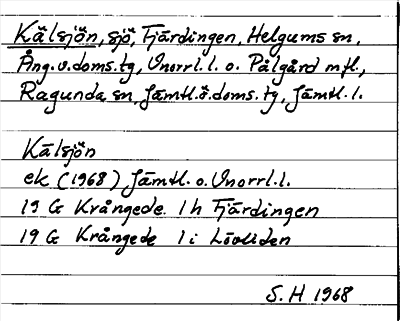 Kälsjön, sjö, Fjärdingen, Helgums sn,
Ång.v.doms.tg, Vnorrl.l. o. Pålgård m fl,
Ragunda sn, Jämtl.ö.doms.tg, Jämtl.l.
Kälsjön
ek (1968) Jämtl. o. Vnorrl.l.
19 G Krångede 1 h Fjärdingen
19 G Krångede 1 i Lövliden
S. H 1968